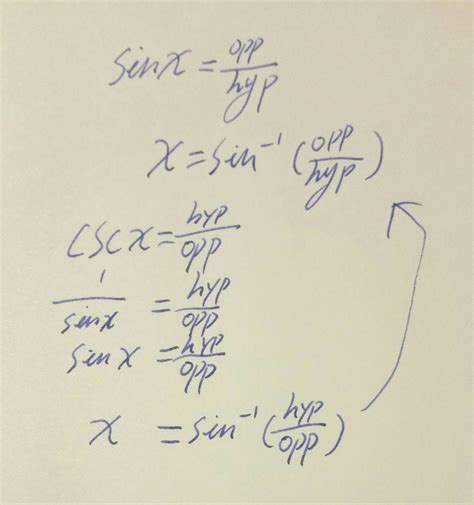 sinx = opp/hyp
x = sin⁻¹ (opp/hyp)
cscx = hyp/opp
1/sinx = hyp/opp
sinx = hyp/opp
x = sin⁻¹ (hyp/opp)